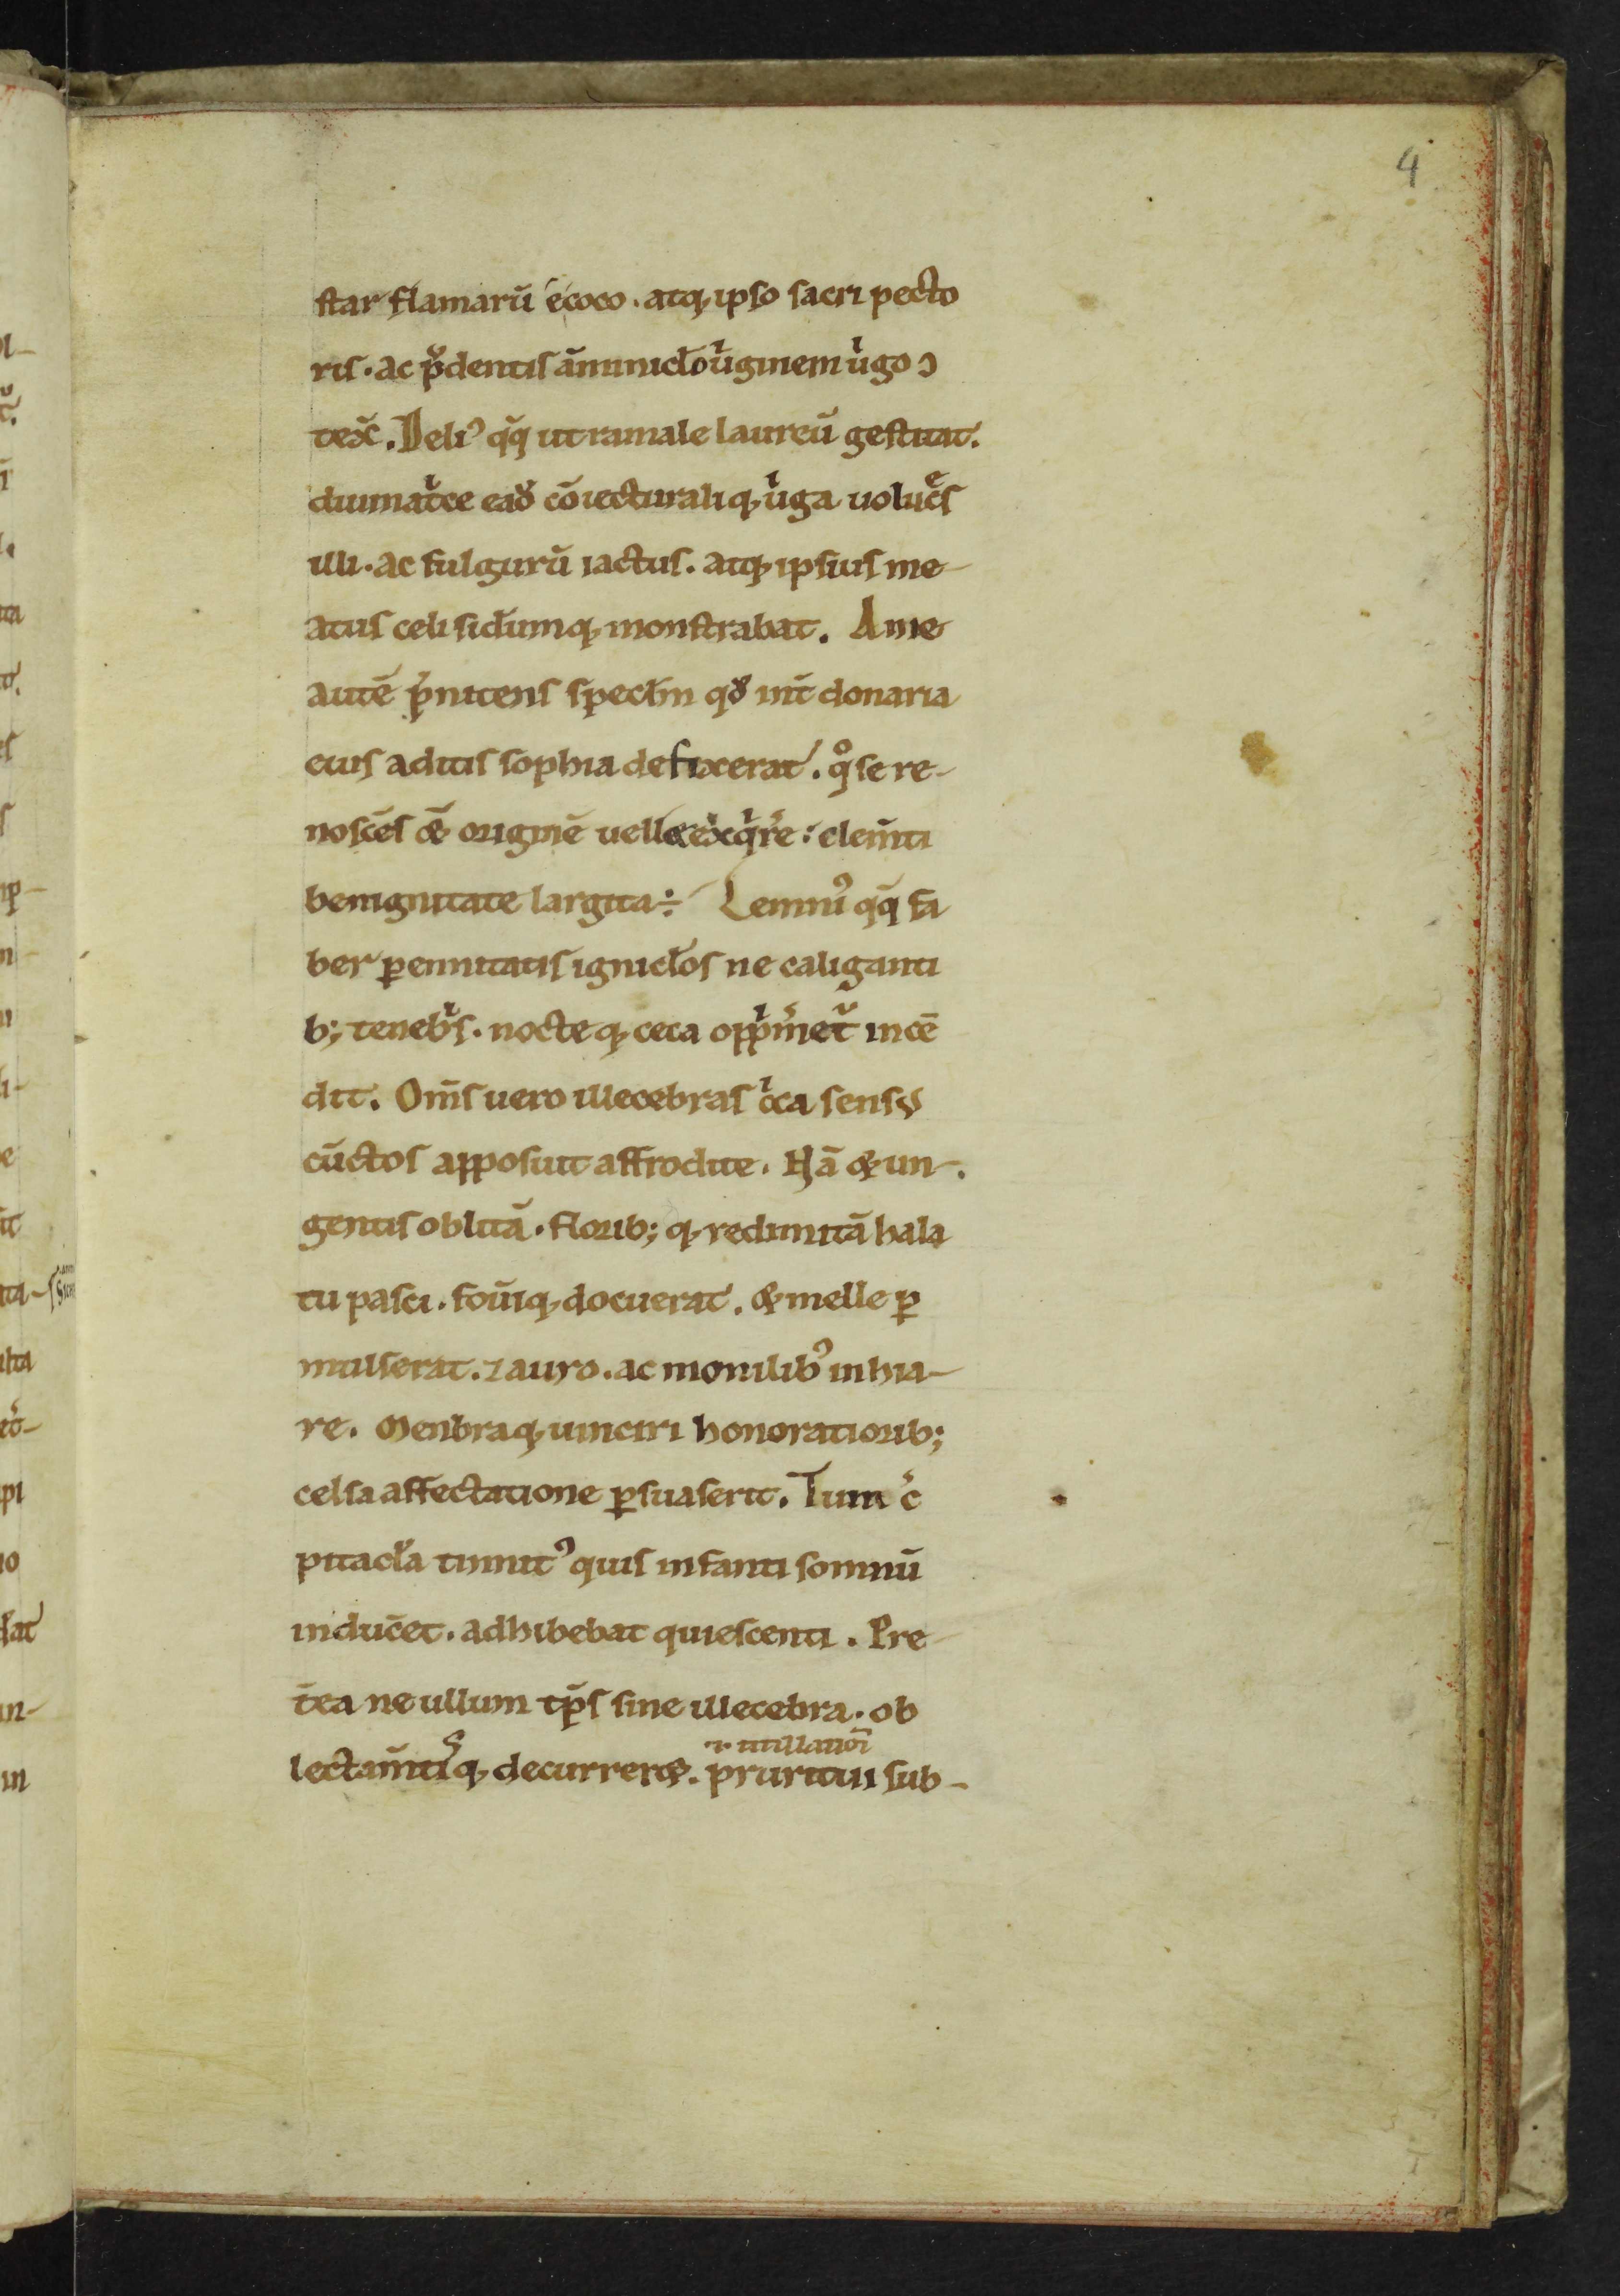 4
star flamarū ecoco . atq; ipso sacri pecto
ris . ac pͮdentis āminicl̄o uͥginem uͥgo ↄ
tex̄ . Deliꝰ q̄q ut ramale laureū gestitat .
diuinatͥce eaꝺ̄ cōiecturaliq; uͥga uolucͤs
illi . ac fulgurū iactus . atq; ipsius me-
atus celi siderumq; monstrabat . Ane
autē p̄nitens specl̄m qꝺ̄ int̄ donaria
eius aditis sophia defixerat . qͦ se re-
noscēs & originē uell& exqͥrͤe : clem̄ti
benignitate largita ÷ Lemniꝰ q̄q fa
ber ꝑennitatis ignicl̄os ne caliganti
b; tenebͥs . nocteq; ceca oppͥm̄et̄ incē
dit . Om̄s uero illecebras cͥca sensꝰ
cūctos apposuit affrodite . Hā & un-
gentis oblitā . florib; q; redimitā hala
tu pasci . fou̅iq; docuerat . & melle ꝑ
mulserat . ⁊ auro . ac monilibꝰ inhia-
re . Menbraq; uinciri honoratiorib;
celsa affectatione ꝑsuaserit . Tunc̄
pitacl̄a tinnitꝰ quis infanti somnū
induc̄et . adhibebat quiescenti . Pre
t̄ea ne ullum tp̄s sine illecebra . ob
.i. titillatiōi
lectam̄tisq; decurrer& . pruritui sub-